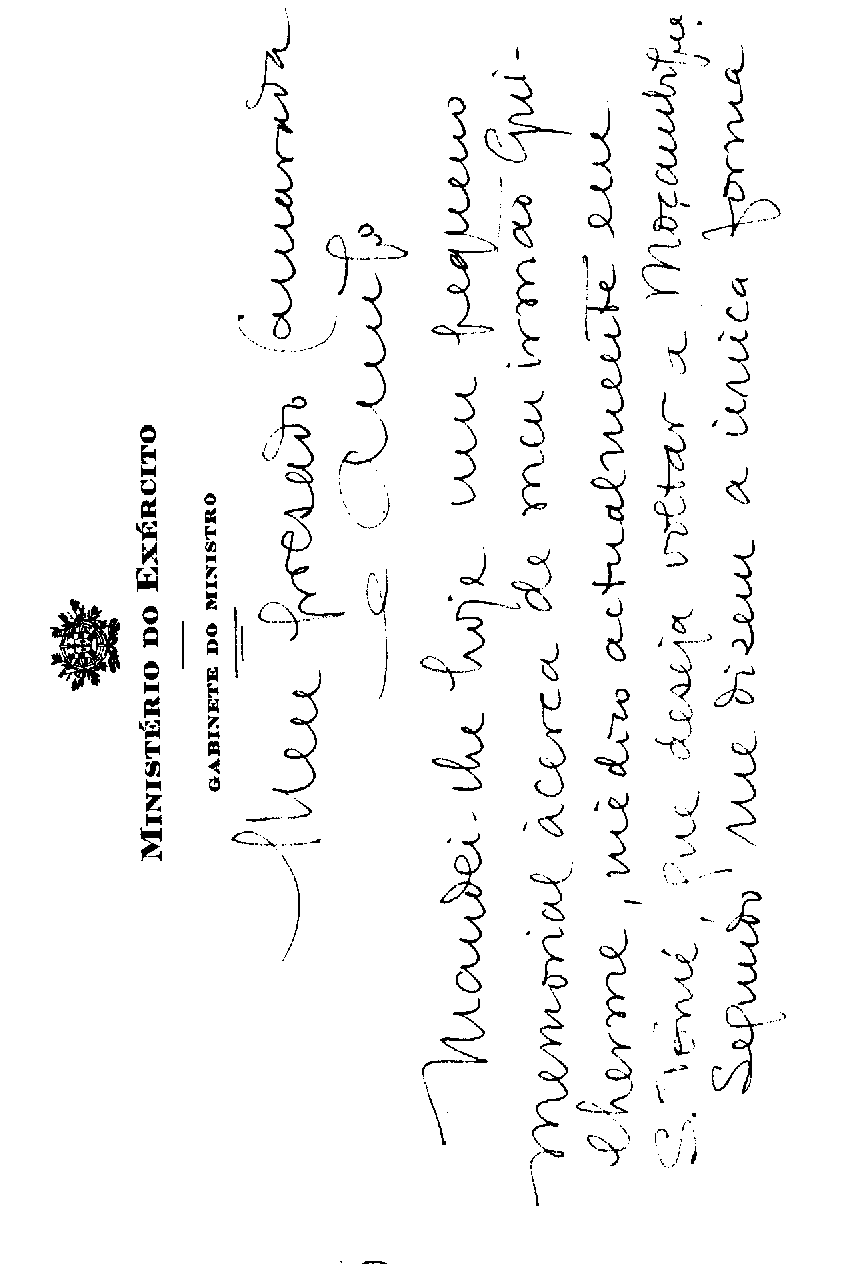 MINISTÉRIO DO EXÉRCITO
GABINETE DO MINISTRO
Meu presado Camarada
e Amigo
Mandei-lhe hoje um pequeno
memorial àcerca de meu irmão Gui-
lherme, médico actualmente em
S. Tomé, que deseja voltar a Moçambique.
Segundo me disem a única forma